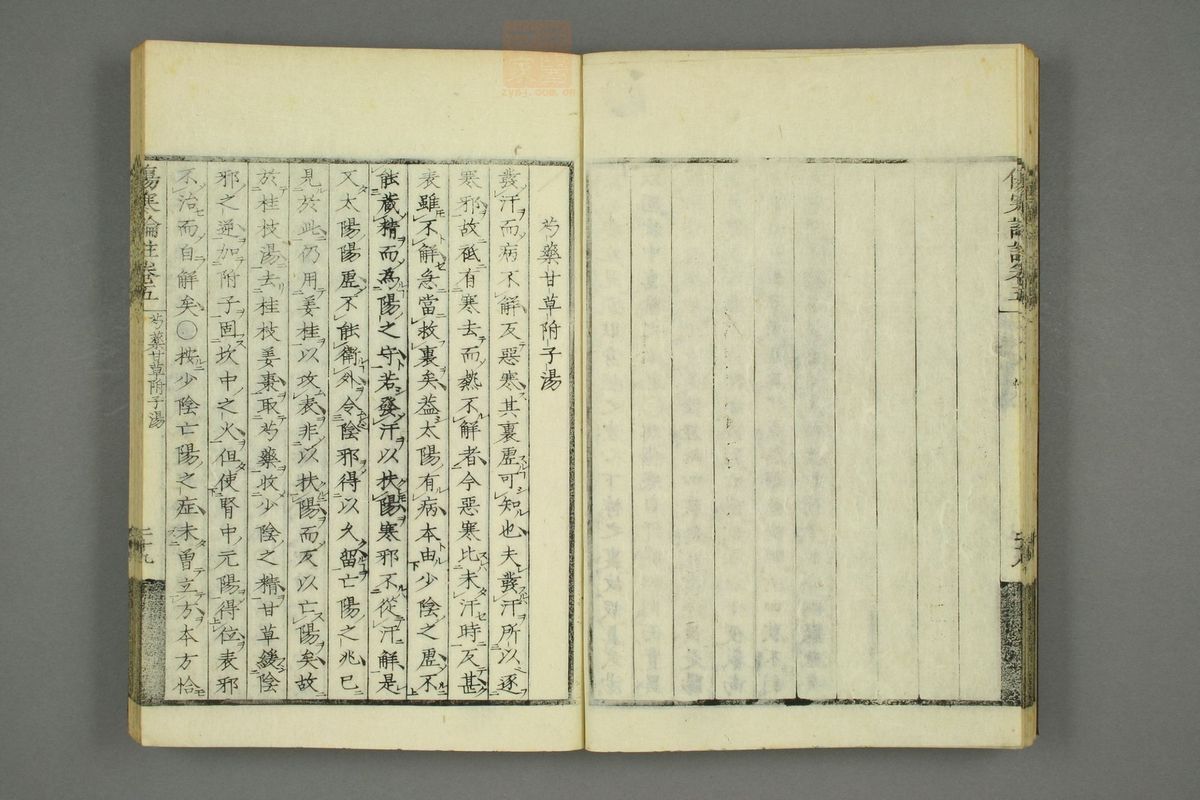 芍藥甘草附子湯
發汗而病不解反惡寒其裏虛可知也夫發汗所以逐
寒邪故祗有寒去而熱不解者今惡寒比未汗時反甚
表雖不解急當救裏矣蓋太陽有病本由少陰之虛不
能藏精而為陽之守若發汗以扶陽寒邪不從汗解是
又太陽陽虛不能衛外令陰邪得以久留亡陽之兆已
見於此仍用姜桂以攻表非以扶陽而反以亡陽矣故
於桂枝湯去桂枝姜棗取芍藥收少陰之精甘草緩陰
邪之逆加附子固坎中之火但使腎中元陽得位表邪
不治而自解矣○按少陰亡陽之症未曾立方本方恰
傷寒論註卷五
芍藥甘草附子湯
二十九
zysj.com.cn